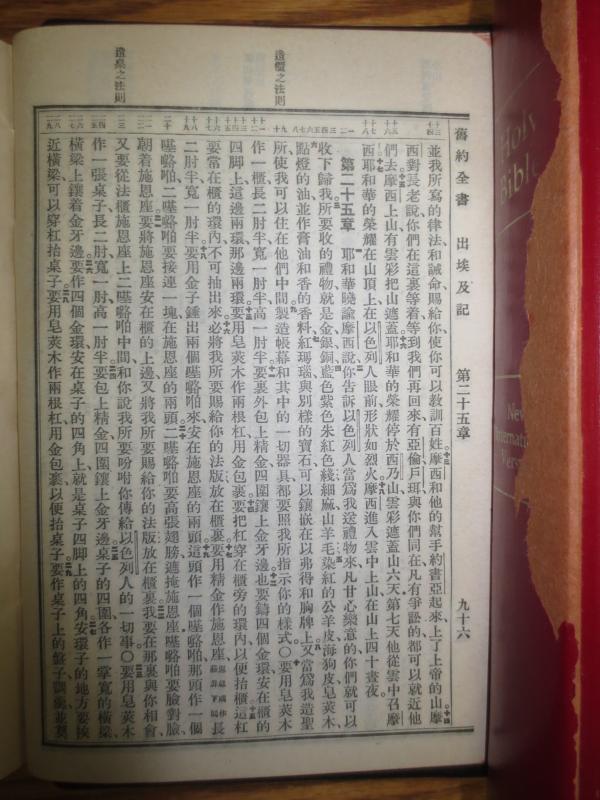 舊約全書 出埃及記 第二十五章 九十六
並我所寫的律法和誡命賜給你使你可以教訓百姓摩西和他的幫手約書亞起來上了上帝的山摩
西對長老說你們在這裏等着等到我們再回來有亞倫戶珥與你們同在凡有爭訟的都可以就近他
們去摩西上山有雲彩把山遮蓋耶和華的榮耀停於西乃山雲彩遮蓋山六天第七天他從雲中召摩
西耶和華的榮耀在山頂上在以色列人眼前形狀如烈火摩西進入雲中上山在山上四十晝夜
第二十五章 耶和華曉諭摩西說你告訴以色列人當爲我送禮物來凡甘心樂意的你們就可以
收下歸我所要收的禮物就是金銀銅藍色紫色朱紅色綫細麻山羊毛染紅的公羊皮海狗皮皂莢木
點燈的油並作膏油和香的香料紅瑪瑙與別樣的寶石可以鑲嵌在以弗得和胸牌上又當爲我造聖
所使我可以住在他們中間製造帳幕和其中的一切器具都要照我所指示你的樣式○要用皂莢木
作一櫃長二肘半寬一肘半高一肘半要裏外包上精金四圍鑲上金牙邊也要鑄四個金環安在櫃的
四脚上這邊兩環那邊兩環要用皂莢木作兩根杠用金包裹要把杠穿在櫃旁的環內以便抬櫃這杠
要常在櫃的環內不可抽出來必將我所要賜給你的法版放在櫃裏要用精金作施恩座
長二肘半寬一肘半要用金子錘出兩個𠼻㗉啪來安在施恩座的兩頭這頭作一個那頭作一個
要接連一塊在施恩座的兩頭二要高張翅膀遮掩施恩座要臉對臉
朝着施恩座要將施恩座安在櫃的上邊又將我所要賜給你的法版放在櫃裏我要在那裏與你相會
又要從法櫃施恩座上二中間和你說我所要吩咐你傳給以色列人的一切事○要用皂莢木
作一張桌子長二肘寬一肘高一肘半要包上精金四圍鑲上金牙邊桌子的四圍各作一掌寬的橫梁
橫梁上鑲着金牙邊要作四個金環安在桌子的四角上就是桌子四脚上的四角安環子的地方要挨
近橫梁可以穿杠抬桌子要用皂莢木作兩根杠用金包裹以便抬桌子要作桌子上的盤子調羹並奠
造櫃之法則
造桌之法則
Holy
Bible
New
International
Version